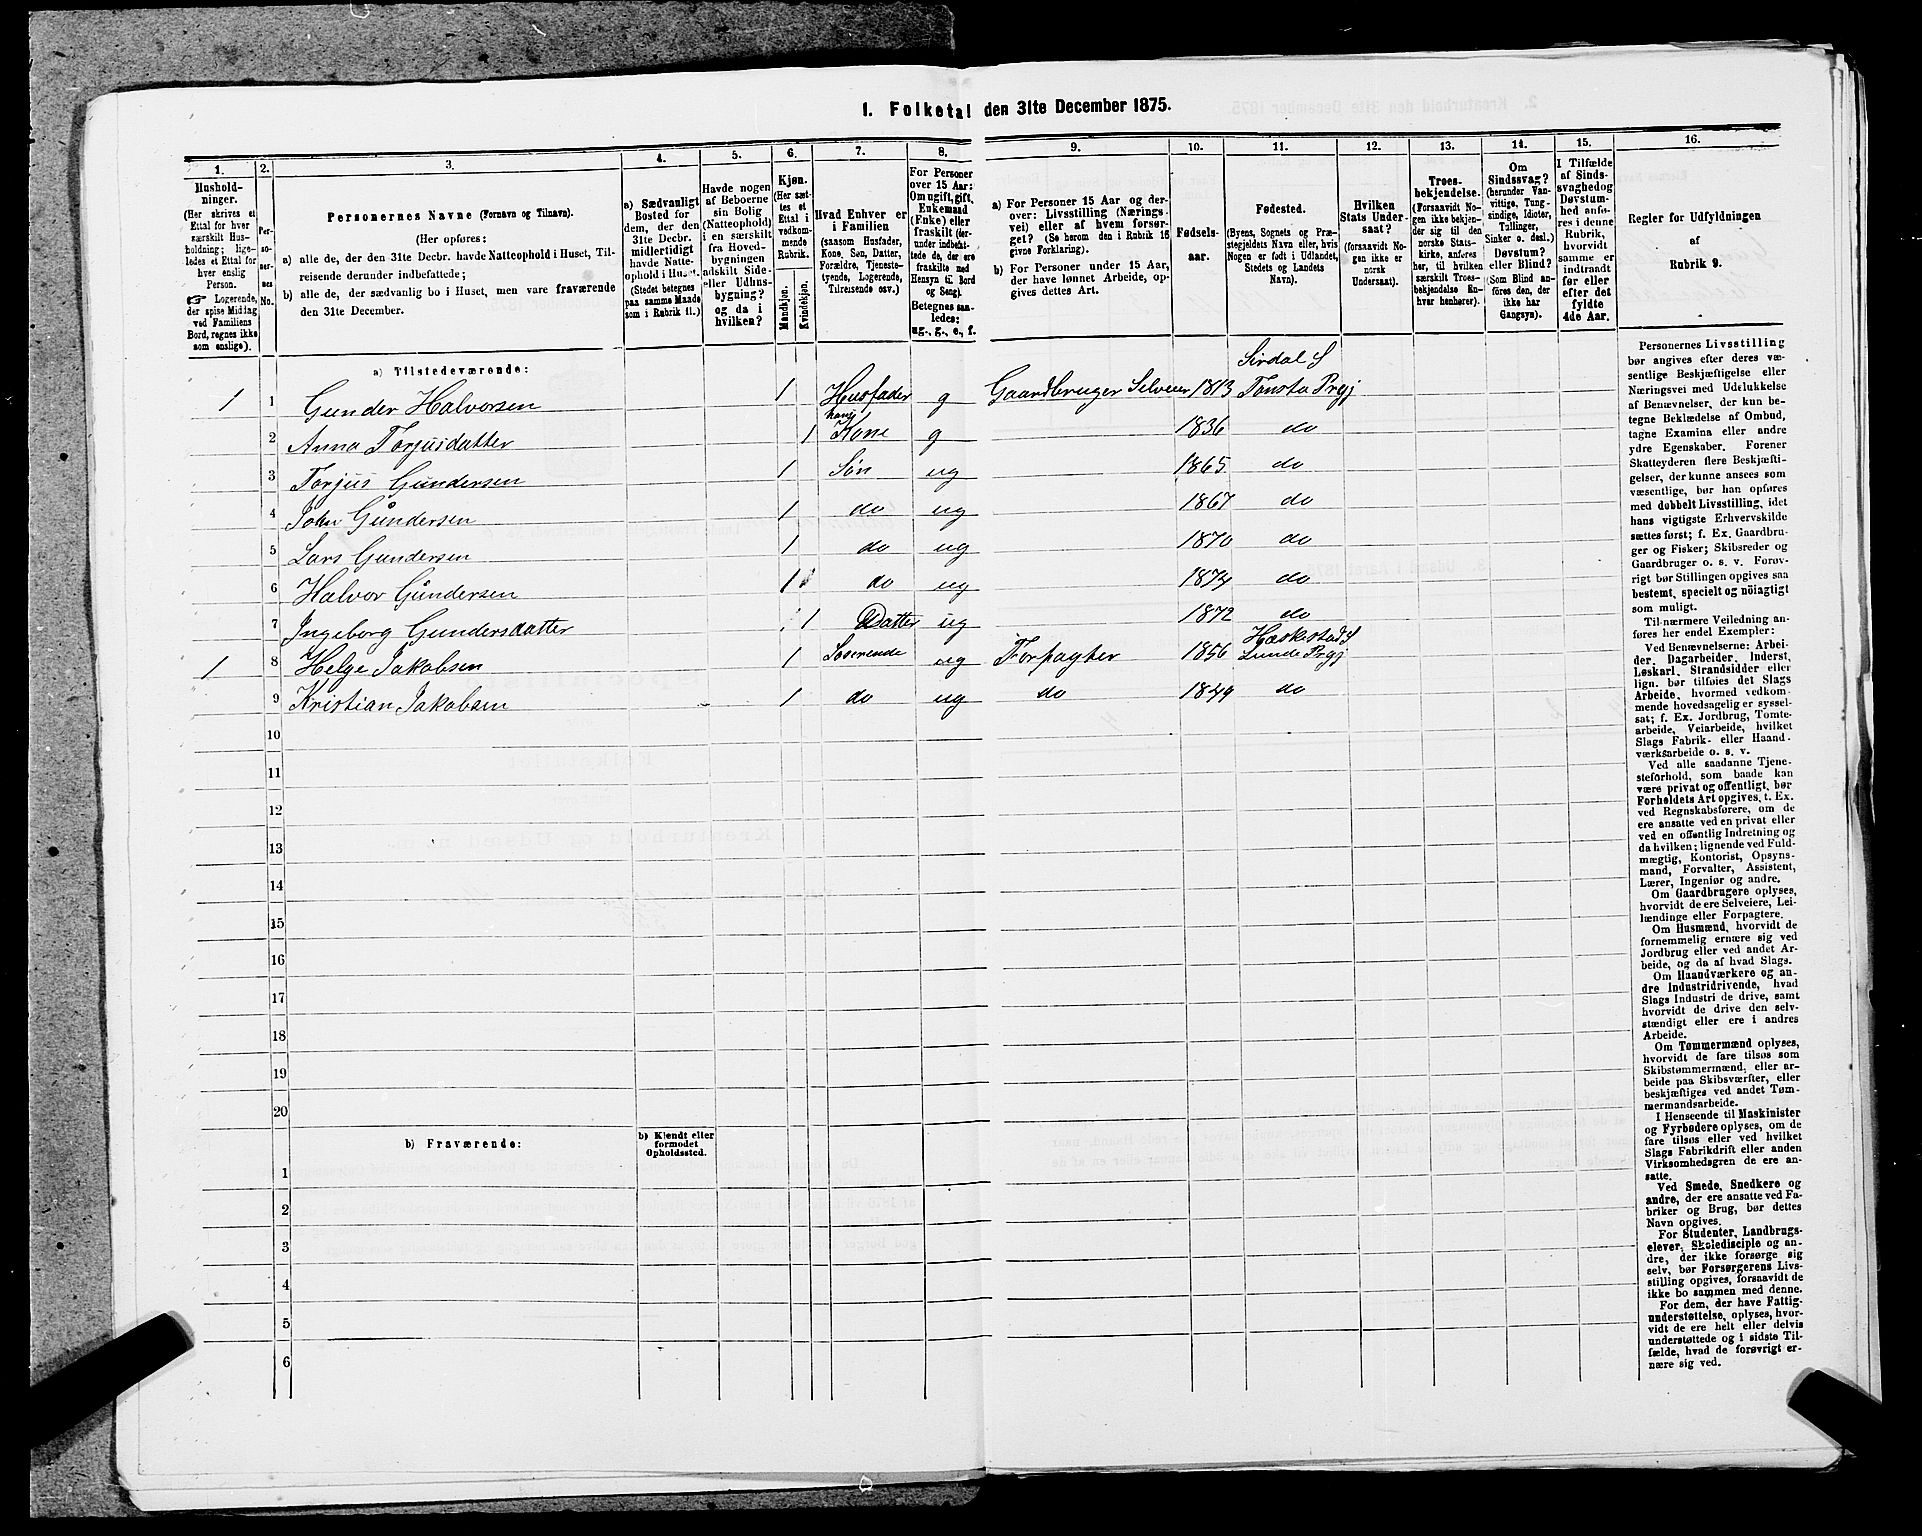 1. Folketal den 31te December 1875.
1. 2. 3. 4. 5. 6. 7. 8. 9. 10. 11. 12. 13. 14. 15. 16.
Hushold-
ninger.
(Her skrives et
Ettal for hver
særskilt Hus-
holdning; lige-
ledes et Ettal for
hver enslig
Person.
☞ Logerende,
der spise Middag
ved Familiens
Bord, regnes ikke
som enslige).
Per-
so-
ner-
nes
No.
Personernes Navne (Fornavn og Tilnavn).
(Her opføres:
a) alle de, der den 31te Decbr. havde Natteophold i Huset, Til-
reisende derunder indbefattede;
b) alle de, der sædvanlig bo i Huset, men vare fraværende
den 31te December.
a) Sædvanligt
Bosted for
dem, der den
31te Decbr.
midlertidigt
havde Natte-
ophold i Huset.
(Stedet betegnes
paa samme Maade
som i Rubrik 11.)
Havde nogen
af Beboerne
sin Bolig
(Natteophold)
i en særskilt
fra Hoved-
bygningen
adskilt Side-
eller Udhus-
bygning?
og da i
hvilken?
Kjøn.
(Her sæt-
tes et
Ettal i
vedkom-
mende
Rubrik.
Mandkjøn.
Kvindekjøn.
Hvad Enhver er
i Familien
(saasom Husfader,
Kone, Søn, Datter,
Forældre, Tjeneste-
tyende, Logerende,
Tilreisende osv.)
For Personer
over 15 Aar:
Om ugift, gift,
Enkemand
(Enke) eller
fraskilt (her-
under indbefat-
tede de, der ere
fraskilte med
Hensyn til Bord
og Seng).
Betegnes saa-
ledes:
ug., g., e., f.
a) For Personer 15 Aar og der-
over: Livsstilling (Nærings-
vei) eller af hvem forsør-
get? (Se herom den i Rubrik 16
givne Forklaring).
b) For Personer under 15 Aar,
der have lønnet Arbeide, op-
gives dettes Art.
Fødsels-
aar.
Fødested.
(Byens, Sognets og Præ-
stegjeldets Navn eller, hvis
Nogen er født i Udlandet,
Stedets og Landets
Navn).
Hvilken
Stats Under-
saat?
(forsaavidt No-
gen ikke er
norsk
Undersaat).
Troes-
bekjendelse.
(Forsaavidt Nogen
ikke bekjen-
der sig til den
norske Stats-
kirke, anføres
her, til hvilken
særskilt Troes-
bekjendelse En-
hver henhører).
Om
Sindssvag?
(herunder Van-
vittige, Tung-
sindige, Idioter,
Tullinger,
Sinker o. desl.)
Døvstum?
eller Blind?
(Som Blind an-
føres den, der
ikke har
Gangsyn).
I Tilfælde
af Sinds-
svaghed og
Døvstum-
hed anfø-
res i denne
Rubrik,
hvorvidt
samme er
indtraadt
før eller
efter det
fyldte
4de Aar.
Regler for Udfyldningen
af
Rubrik 9.
a) Tilstedeværende:
Sirdal S
1 1 Gunder Halvorsen 1 Husfader g Gaardbruger Selveier 1813 Tonstad Prgj
hans
2 Anna Torjusdatter 1 Kone g 1836 do
3 Torjus Gundersen 1 Søn ug 1865 do
4 John Gundersen 1 do ug 1867 do
5 Lars Gundersen 1 do ug 1870 do
6 Halvor Gundersen 1 do ug 1874 do
7 Ingeborg Gundersdatter 1 Datter ug 1872 do
Hæskestad S
1 8 Helge Jakobsen 1 Loserende ug Forpagter 1856 Lunde Prgj
9 Kristian Jakobsen 1 do ug do 1849 do
10
11
12
13
14
15
16
17
18
19
20
b) Fraværende:
b) Kjendt eller
formodet
Opholdssted.
1
2
3
4
5
6
Personernes Livsstilling
bør angives efter deres væ-
sentlige Beskjæftigelse eller
Næringsvei med Udelukkelse
af Benævnelser, der kun be-
tegne Beklædelse af Ombud,
tagne Examina eller andre
ydre Egenskaber. Forener
Skatteyderen flere Beskjæfti-
gelser, der kunne ansees som
væsentlige, bør han opføres
med dobbelt Livsstilling, idet
hans vigtigste Erhvervskilde
sættes først; f. Ex. Gaardbru-
ger og Fisker; Skibsreder og
Gaardbruger o. s. v. Forøv-
rigt bør Stillingen opgives saa
bestemt, specielt og nøiagtigt
som muligt.
Til nærmere Veiledning an-
føres her endel Exempler:
Ved Benævnelserne: Arbei-
der, Dagarbeider, Inderst,
Løskarl, Strandsidder eller
lign. bør tilføies det Slags
Arbeide, hvormed vedkom-
mende hovedsagelig er syssel-
sat; f. Ex. Jordbrug, Tomte-
arbeide, Veiarbeide, hvilket
Slags Fabrik- eller Haand-
værksarbeide o. s. v.
Ved alle saadanne Tjene-
steforhold, som baade kan
være privat og offentligt, bør
Forholdets Art opgives, t. Ex.
ved Regnskabsførere, om de
ere ansatte ved en privat eller
ved en offentlig Indretning og
da hvilken; lignende ved Fuld-
mægtig, Kontorist, Opsyns-
mand, Forvalter, Assistent,
Lærer, Ingeniør og andre.
Om Gaardbrugere oplyses,
hvorvidt de ere Selveiere, Lei-
lændinge eller Forpagtere.
Om Husmænd, hvorvidt de
fornemmelig ernære sig ved
Jordbrug eller ved andet Ar-
beide, og da af hvad Slags.
Om Haandværkere og an-
dre Industridrivende, hvad
Slags Industri de drive, samt
hvorvidt de drive den selv-
stændigt eller ere i andres
Arbeide.
Om Tømmermænd oplyses,
hvorvidt de fare tilsøs som
Skibstømmermænd, eller ar-
beide paa Skibsværfter, eller
beskjæftiges ved andet Tøm-
mermandsarbeide.
I Henseende til Maskinister
og Fyrbødere oplyses, om de
fare tilsøs eller ved hvilket
Slags Fabrikdrift eller anden
Virksomhedsgren de ere an-
satte.
Ved Smede, Snedkere og
andre, der ere ansatte ved Fa-
briker og Brug, bør dettes
Navn opgives.
For Studenter, Landbrugs-
elever, Skoledisciple og an-
dre, der ikke forsørge sig
selv, bør Forsørgerens Livs-
stilling opgives, forsaavidt de
ikke bo sammen med denne.
For dem, der have Fattig-
understøttelse, oplyses, hvor-
vidt de ere helt eller delvis
understøttede og i sidste Til-
fælde, hvad de forøvrigt er-
nære sig ved.